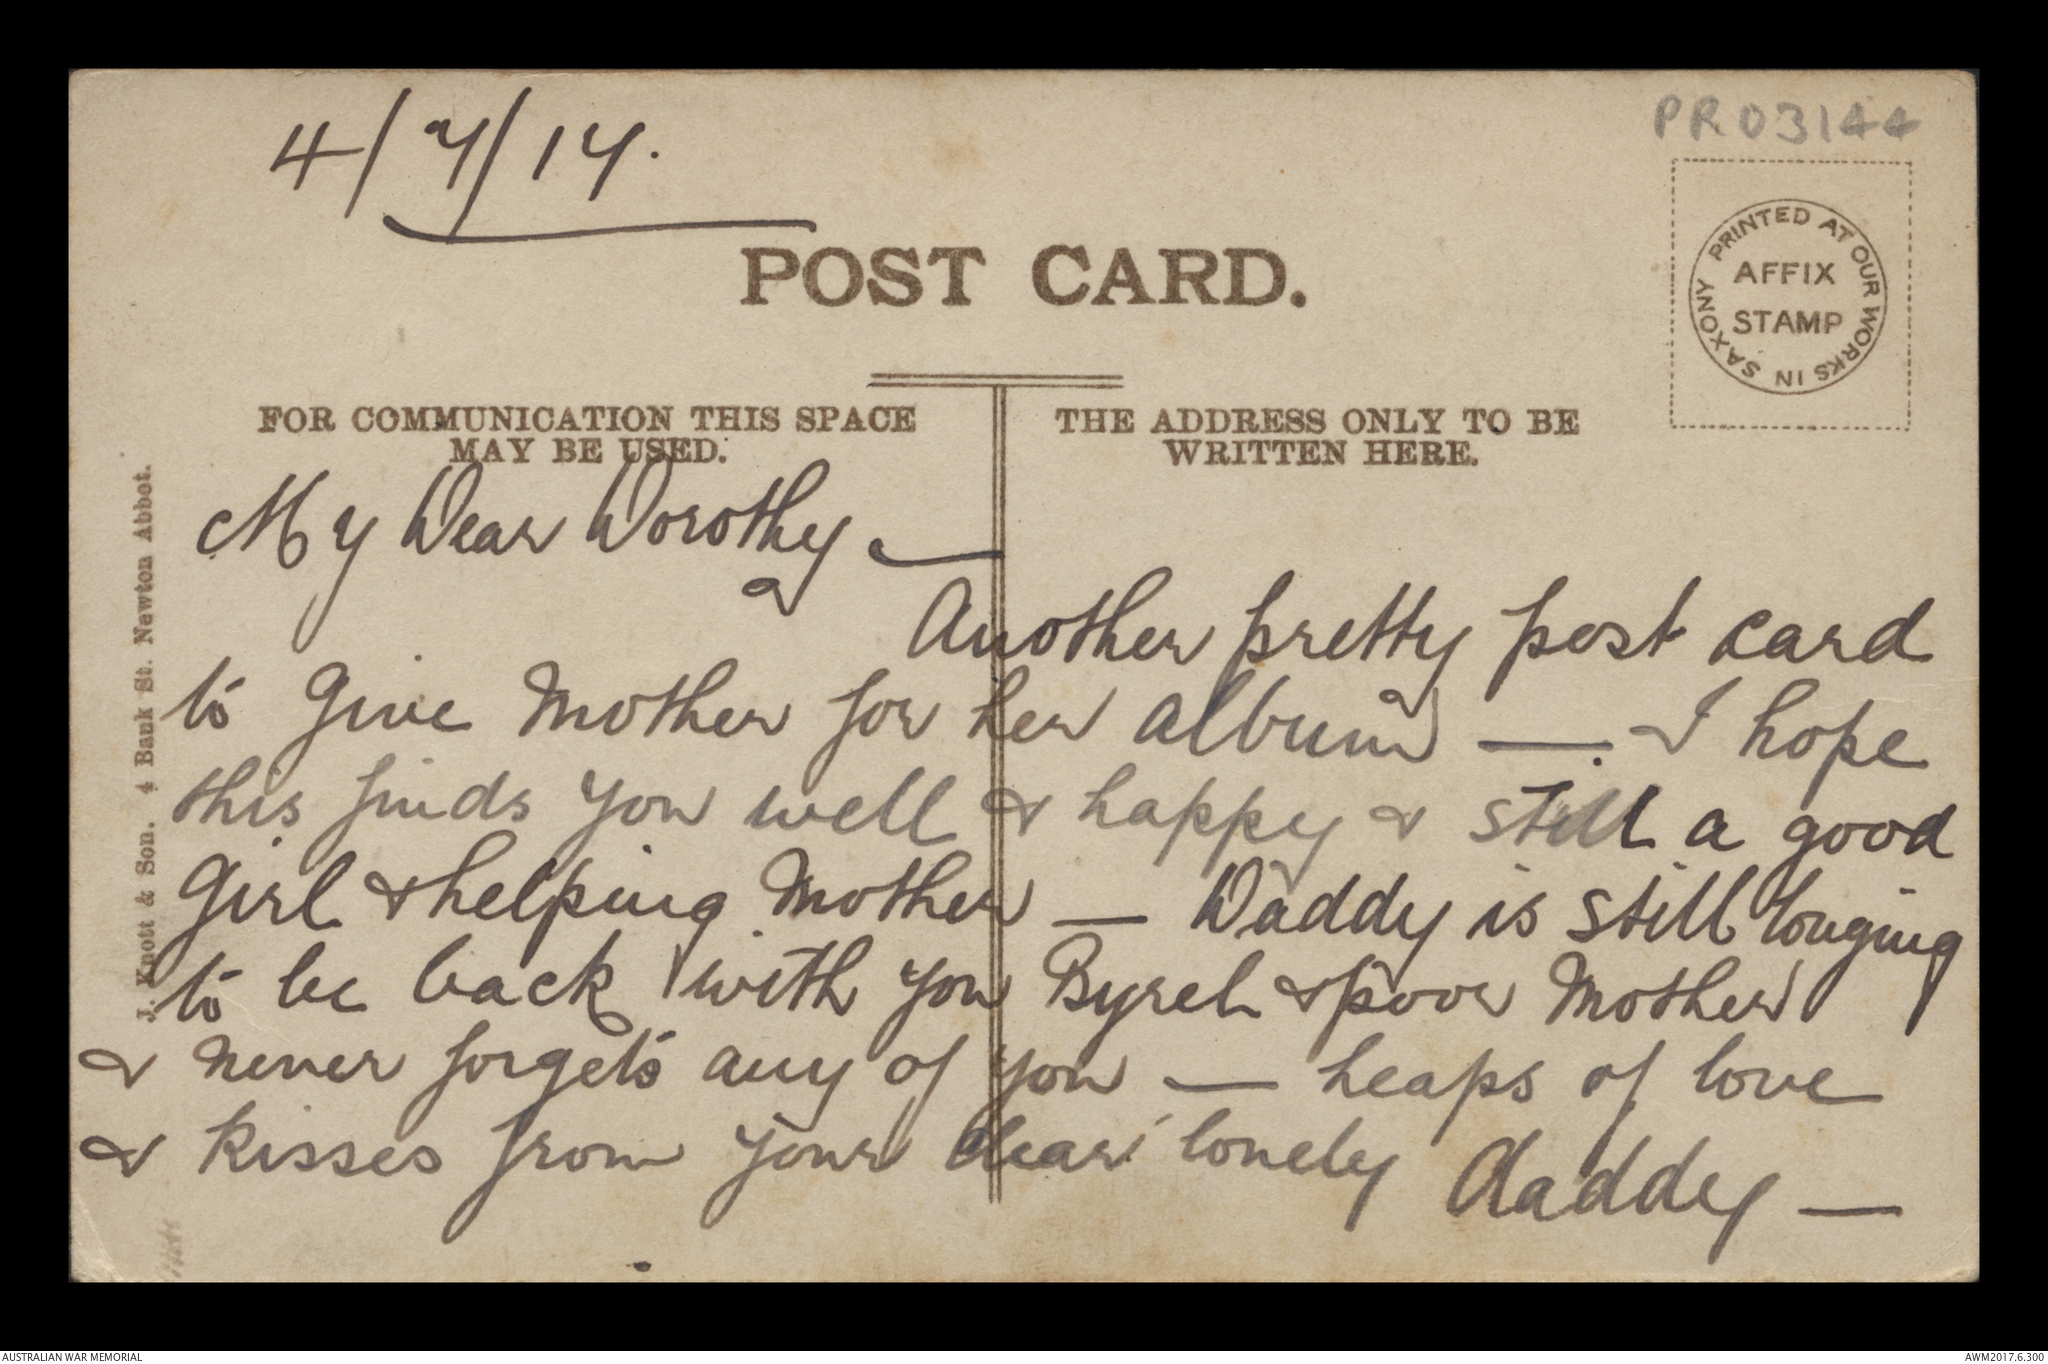 4/7/17.
PR03144
POST CARD.
PRINTED AT OUR WORKS IN SAXONY
AFFIX
STAMP
FOR COMMUNICATION THIS SPACE
MAY BE USED.
THE ADDRESS ONLY TO BE
WRITTEN HERE.
J. Knott & Son. 4 Bank St. Newton Abbot.
My Dear Dorothy —
Another pretty post card
to give Mother for her album —. I hope
this finds you well & happy & still a good
Girl & helping Mother — Daddy is still longing
to be back with you Byrel & poor Mother
& never forgets any of you — heaps of love
& kisses from your dear lonely daddy —
AUSTRALIAN WAR MEMORIAL
AWM2017.6.300